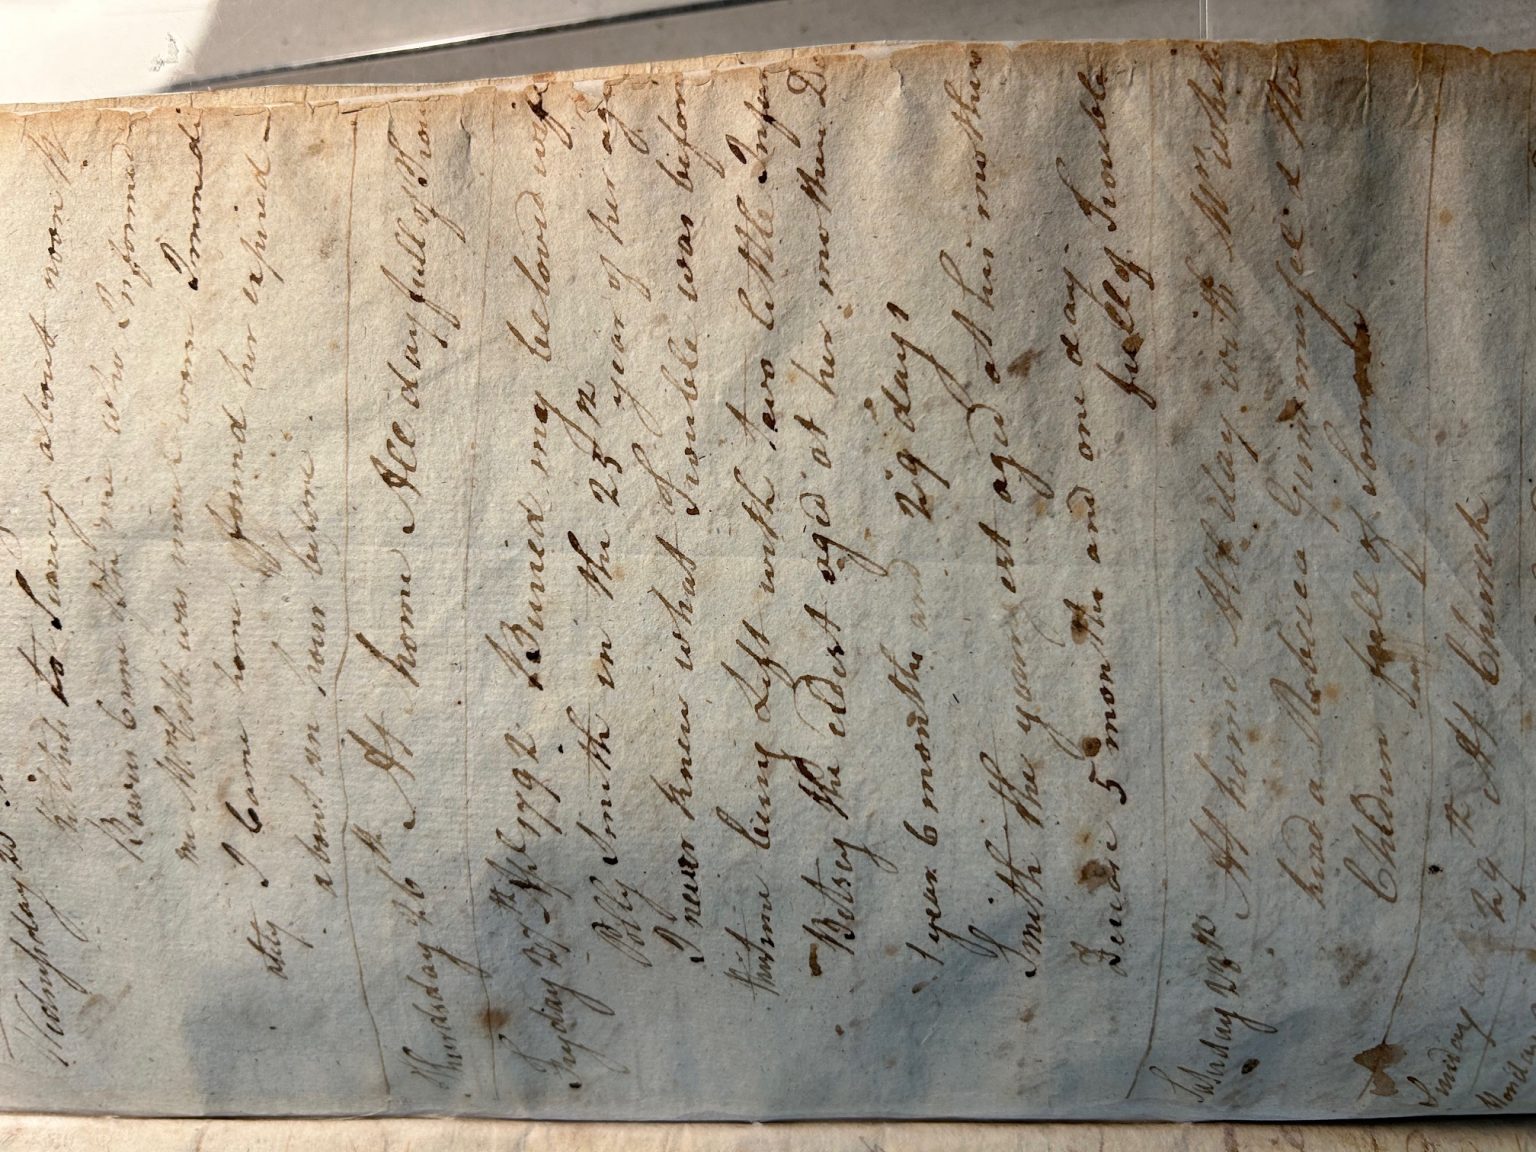 Wednsday 25
to Survey about noon
Bowin Came there who Informd
me Mrs was worse Immedi
atly I Came home found her expired
about an hour before
Thursday 26th At home All day full of Trou
Fryday 27th 1792 Buried my beloved wife
Polly Smith in the 25th year of her age
I never knew what Trouble was befor
this time being Left with two little Infan
Betsey the eldest aged at her mothers De
1 year 6 months and 29 days
Smith the youngest aged at his mothers
Decase 5 months and one day
full of Trouble
Saturday 28th At home All day with
had a Robeca the
Children full of Sorrow
Sunday 29th At Church
Monday